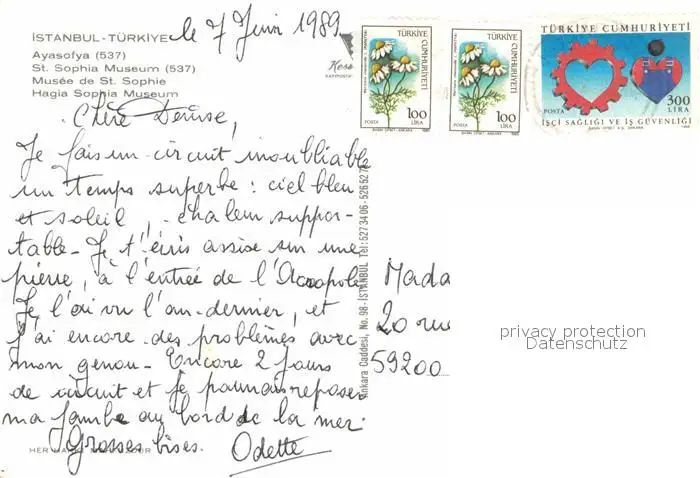 le 7 Juin 1989
İSTANBUL-TÜRKİYE
Ayasofya (537)
St. Sophia Museum (537)
Musée de St. Sophie
Hagia Sophia Museum
TÜRKİYE CUMHURİYETİ
100 LİRA
POSTA
TÜRKİYE CUMHURİYETİ
100 LİRA
POSTA
TÜRKİYE CUMHURİYETİ
300 LİRA
POSTA
İŞÇİ SAĞLIĞI VE İŞ GÜVENLİĞİ
Chère Denise,
Je fais un circuit inoubliable
un temps superbe : ciel bleu
et soleil, chaleur suppor-
table. Je t'écris assise sur une
pierre, à l'entrée de l'Acropole
Je l'ai vu l'an-dernier, et
j'ai encore des problèmes avec
mon genou. Encore 2 jours
de circuit et je pourrais reposer
ma jambe au bord de la mer.
Grosses bises. Odette
Ankara Caddesi, No. 98-İSTANBUL Tel: 527 34 06 - 526 52 7
Mada
20 rue
59200
privacy protection
Datenschutz